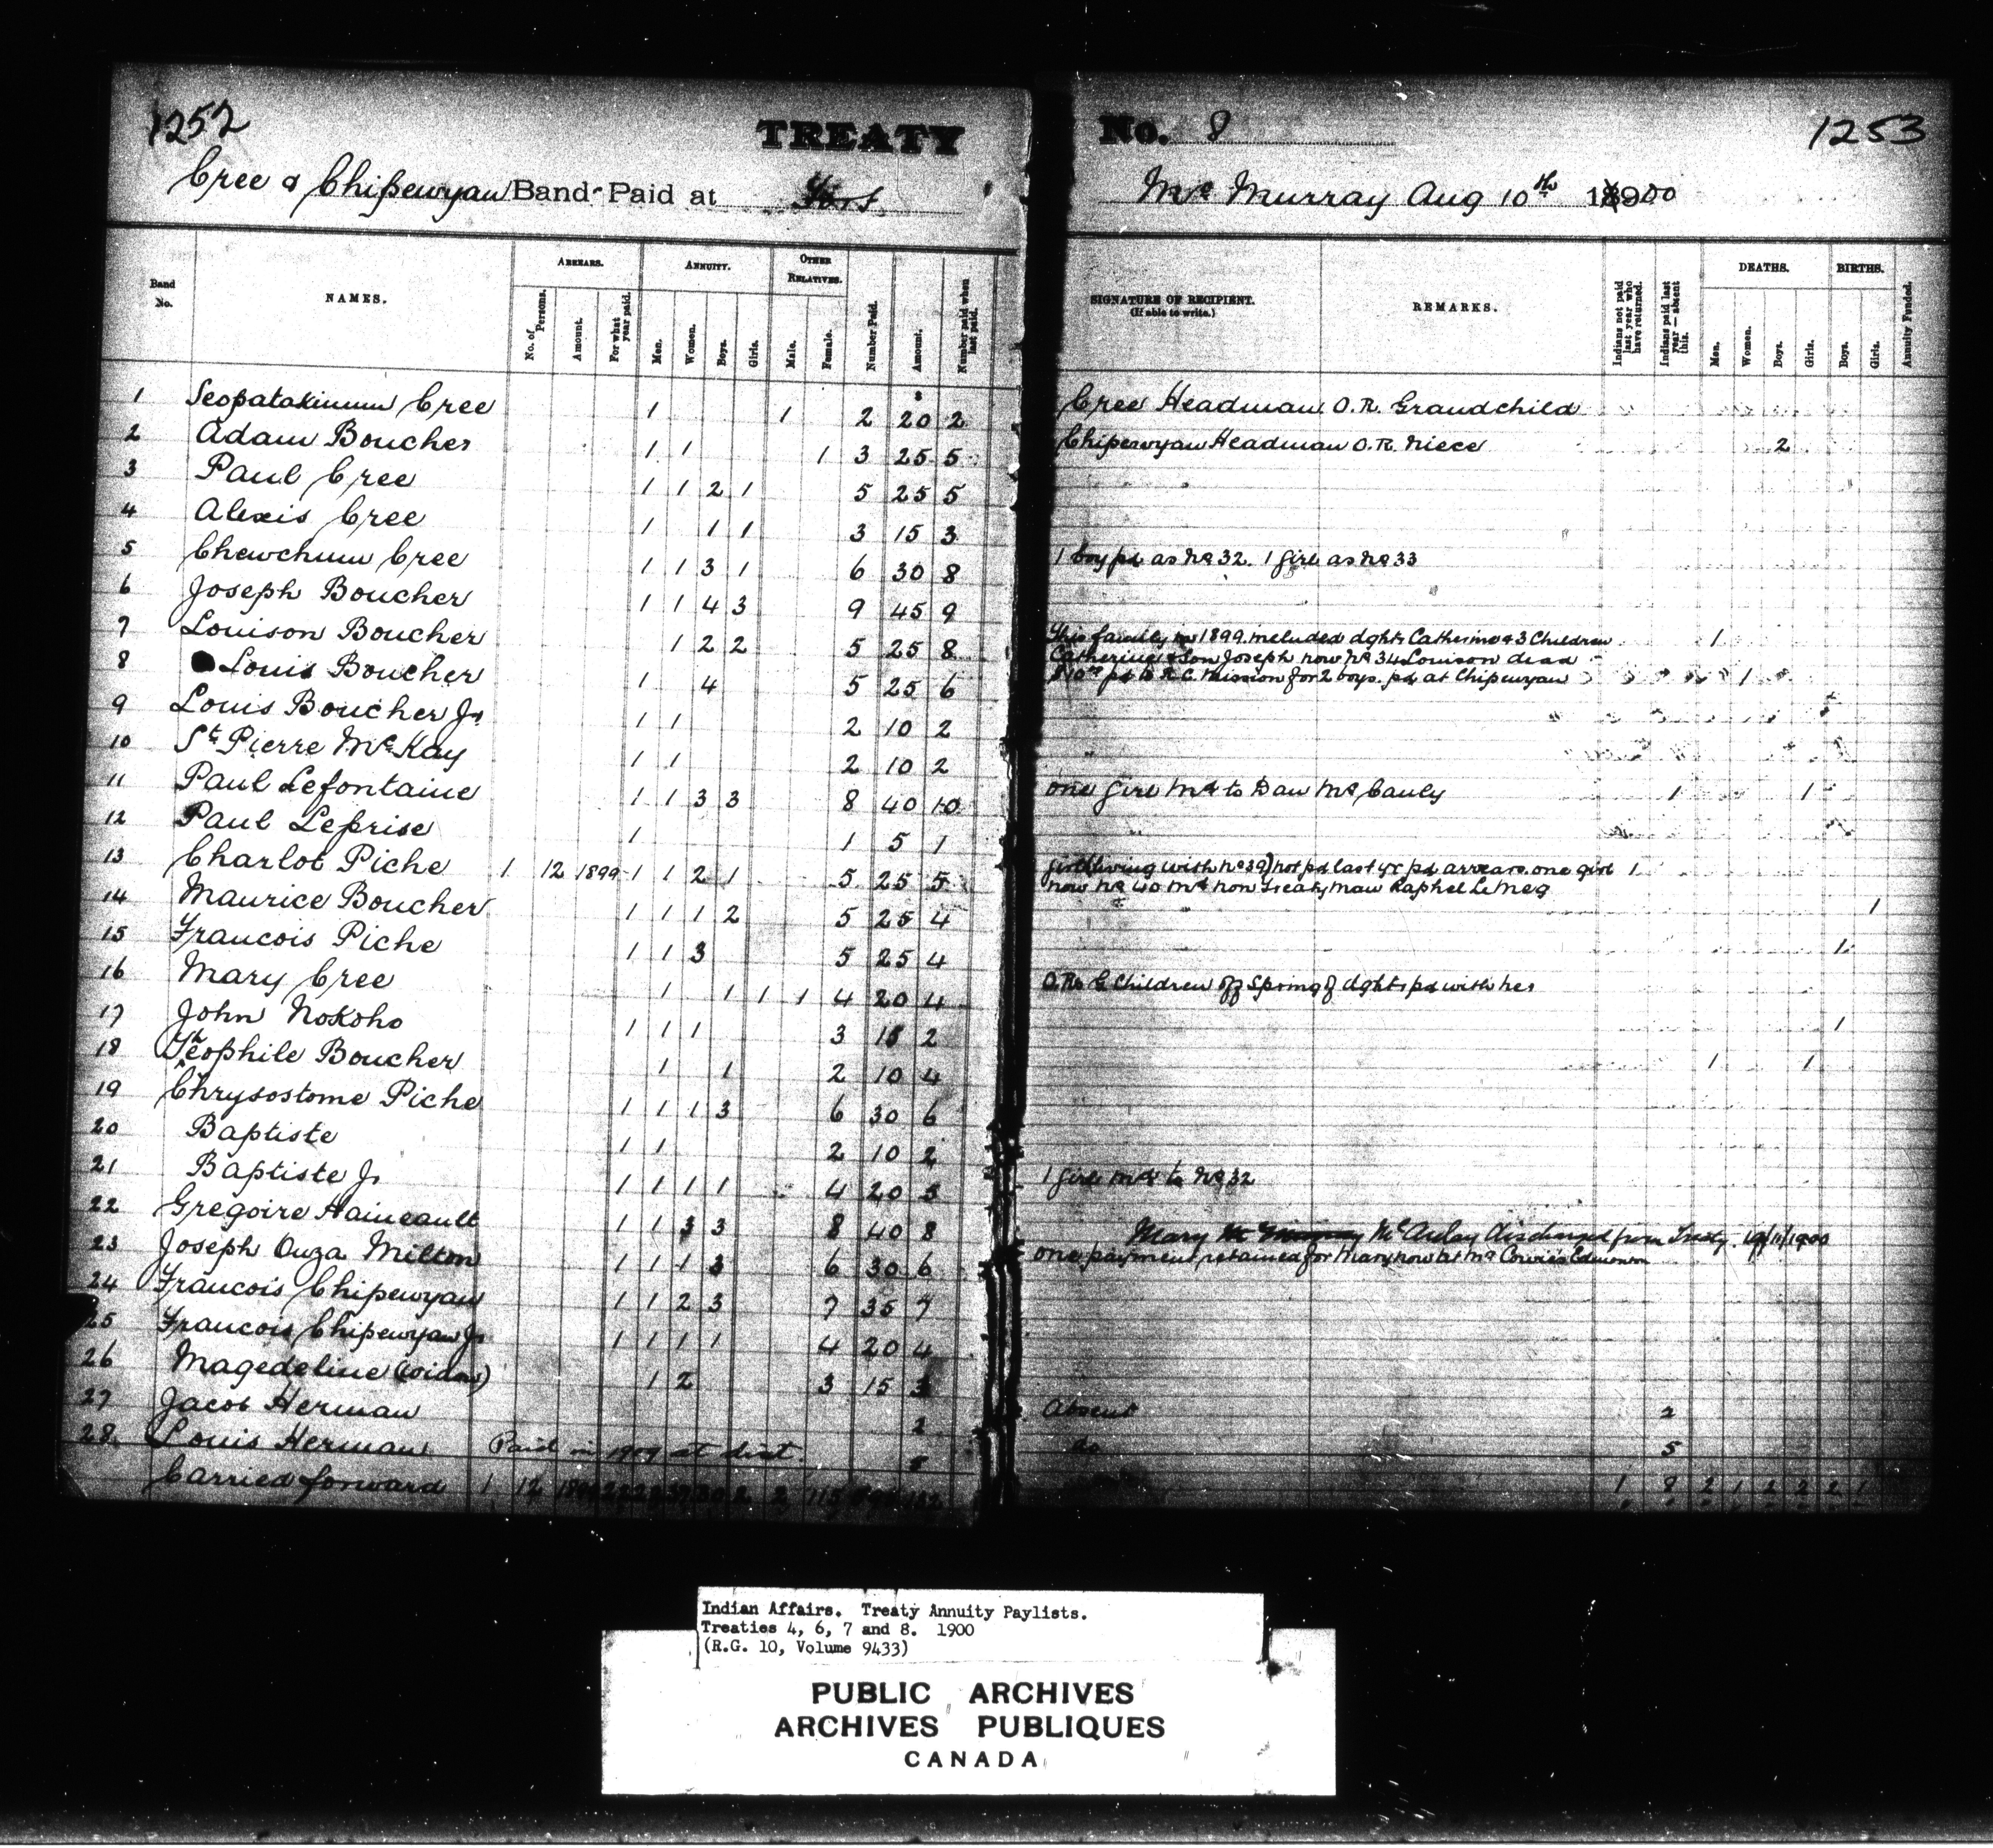 1252
TREATY
No. 8
1253
Cree & Chipewyan Band Paid at Fort
Mc Murray Aug 10th 1900
Band No.
NAMES.
ARREARS.
No. of Persons.
Amount.
For what year paid.
ANNUITY.
Men.
Women.
Boys.
Girls.
OTHER RELATIVES.
Male.
Female.
Number Paid.
Amount.
Number paid when last paid.
SIGNATURE OF RECIPIENT.
(If able to write.)
REMARKS.
Indians not paid last year who have returned.
Indians paid last year—absent this.
DEATHS.
Men.
Women.
Boys.
Girls.
BIRTHS.
Boys.
Girls.
Annuity Funded.
1 Seopatakinum Cree 1 1 2 20 2 Cree Headman O.R. Grandchild
2 Adam Boucher 1 1 1 3 25 5 Chipewyan Headman O.R. Niece 2
3 Paul Cree 1 1 2 1 5 25 5
4 Alexis Cree 1 1 1 3 15 3
5 Chewchum Cree 1 1 3 1 6 30 8 1 boy pd as No 32. 1 girl as No 33
6 Joseph Boucher 1 1 4 3 9 45 9
7 Louison Boucher 1 2 2 5 25 8 This family in 1899 included dght Catherine & 3 Children 1
Catherine & Son Joseph now No 34 Louison dead
8 Louis Boucher 1 4 5 25 6 $10.00 pd to R.C. Mission for 2 boys. pd at Chipewyan 1
9 Louis Boucher Jr 1 1 2 10 2
10 St Pierre McKay 1 1 2 10 2
11 Paul Lefontaine 1 1 3 3 8 40 10 one girl Md to Dan McCauly 1 1
12 Paul Leprise 1 1 5 1
13 Charlot Piche 1 12 1899 1 1 2 1 5 25 5 girl (living with No 39) not pd last yr pd arrears one girl 1
now No 40 Md non Treaty man Raphel Le Neg
14 Maurice Boucher 1 1 1 2 5 25 4 1
15 Francois Piche 1 1 3 5 25 4 1
16 Mary Cree 1 1 1 1 4 20 4 O.Rs G Children off Spring of dghts pd with her
17 John Nokoho 1 1 1 3 15 2 1
18 Theophile Boucher 1 1 2 10 4 1 1
19 Chrysostome Piche 1 1 1 3 6 30 6
20 Baptiste 1 1 2 10 2
21 Baptiste Jr 1 1 1 1 4 20 5 1 girl Md to No 32
22 Gregoire Haineault 1 1 3 3 8 40 8
Mary McAulay discharged from Treaty
23 Joseph Ouza Milton 1 1 1 3 6 30 6 one payment retained for Mary now at Mc Cowie's Edmonton
24 Francois Chipewyan 1 1 2 3 7 35 7
25 Francois Chipewyan Jr 1 1 1 1 4 20 4
26 Magedeline (Widow) 1 2 3 15 3
27 Jacob Herman 2 Absent 2
28 Louis Herman Paid in 1909 at dist. 5 do 5
Carried forward 1 12 1 8 2 1 2 2 2 1
Indian Affairs. Treaty Annuity Paylists.
Treaties 4, 6, 7 and 8. 1900
(R.G. 10, Volume 9433)
PUBLIC ARCHIVES
ARCHIVES PUBLIQUES
CANADA